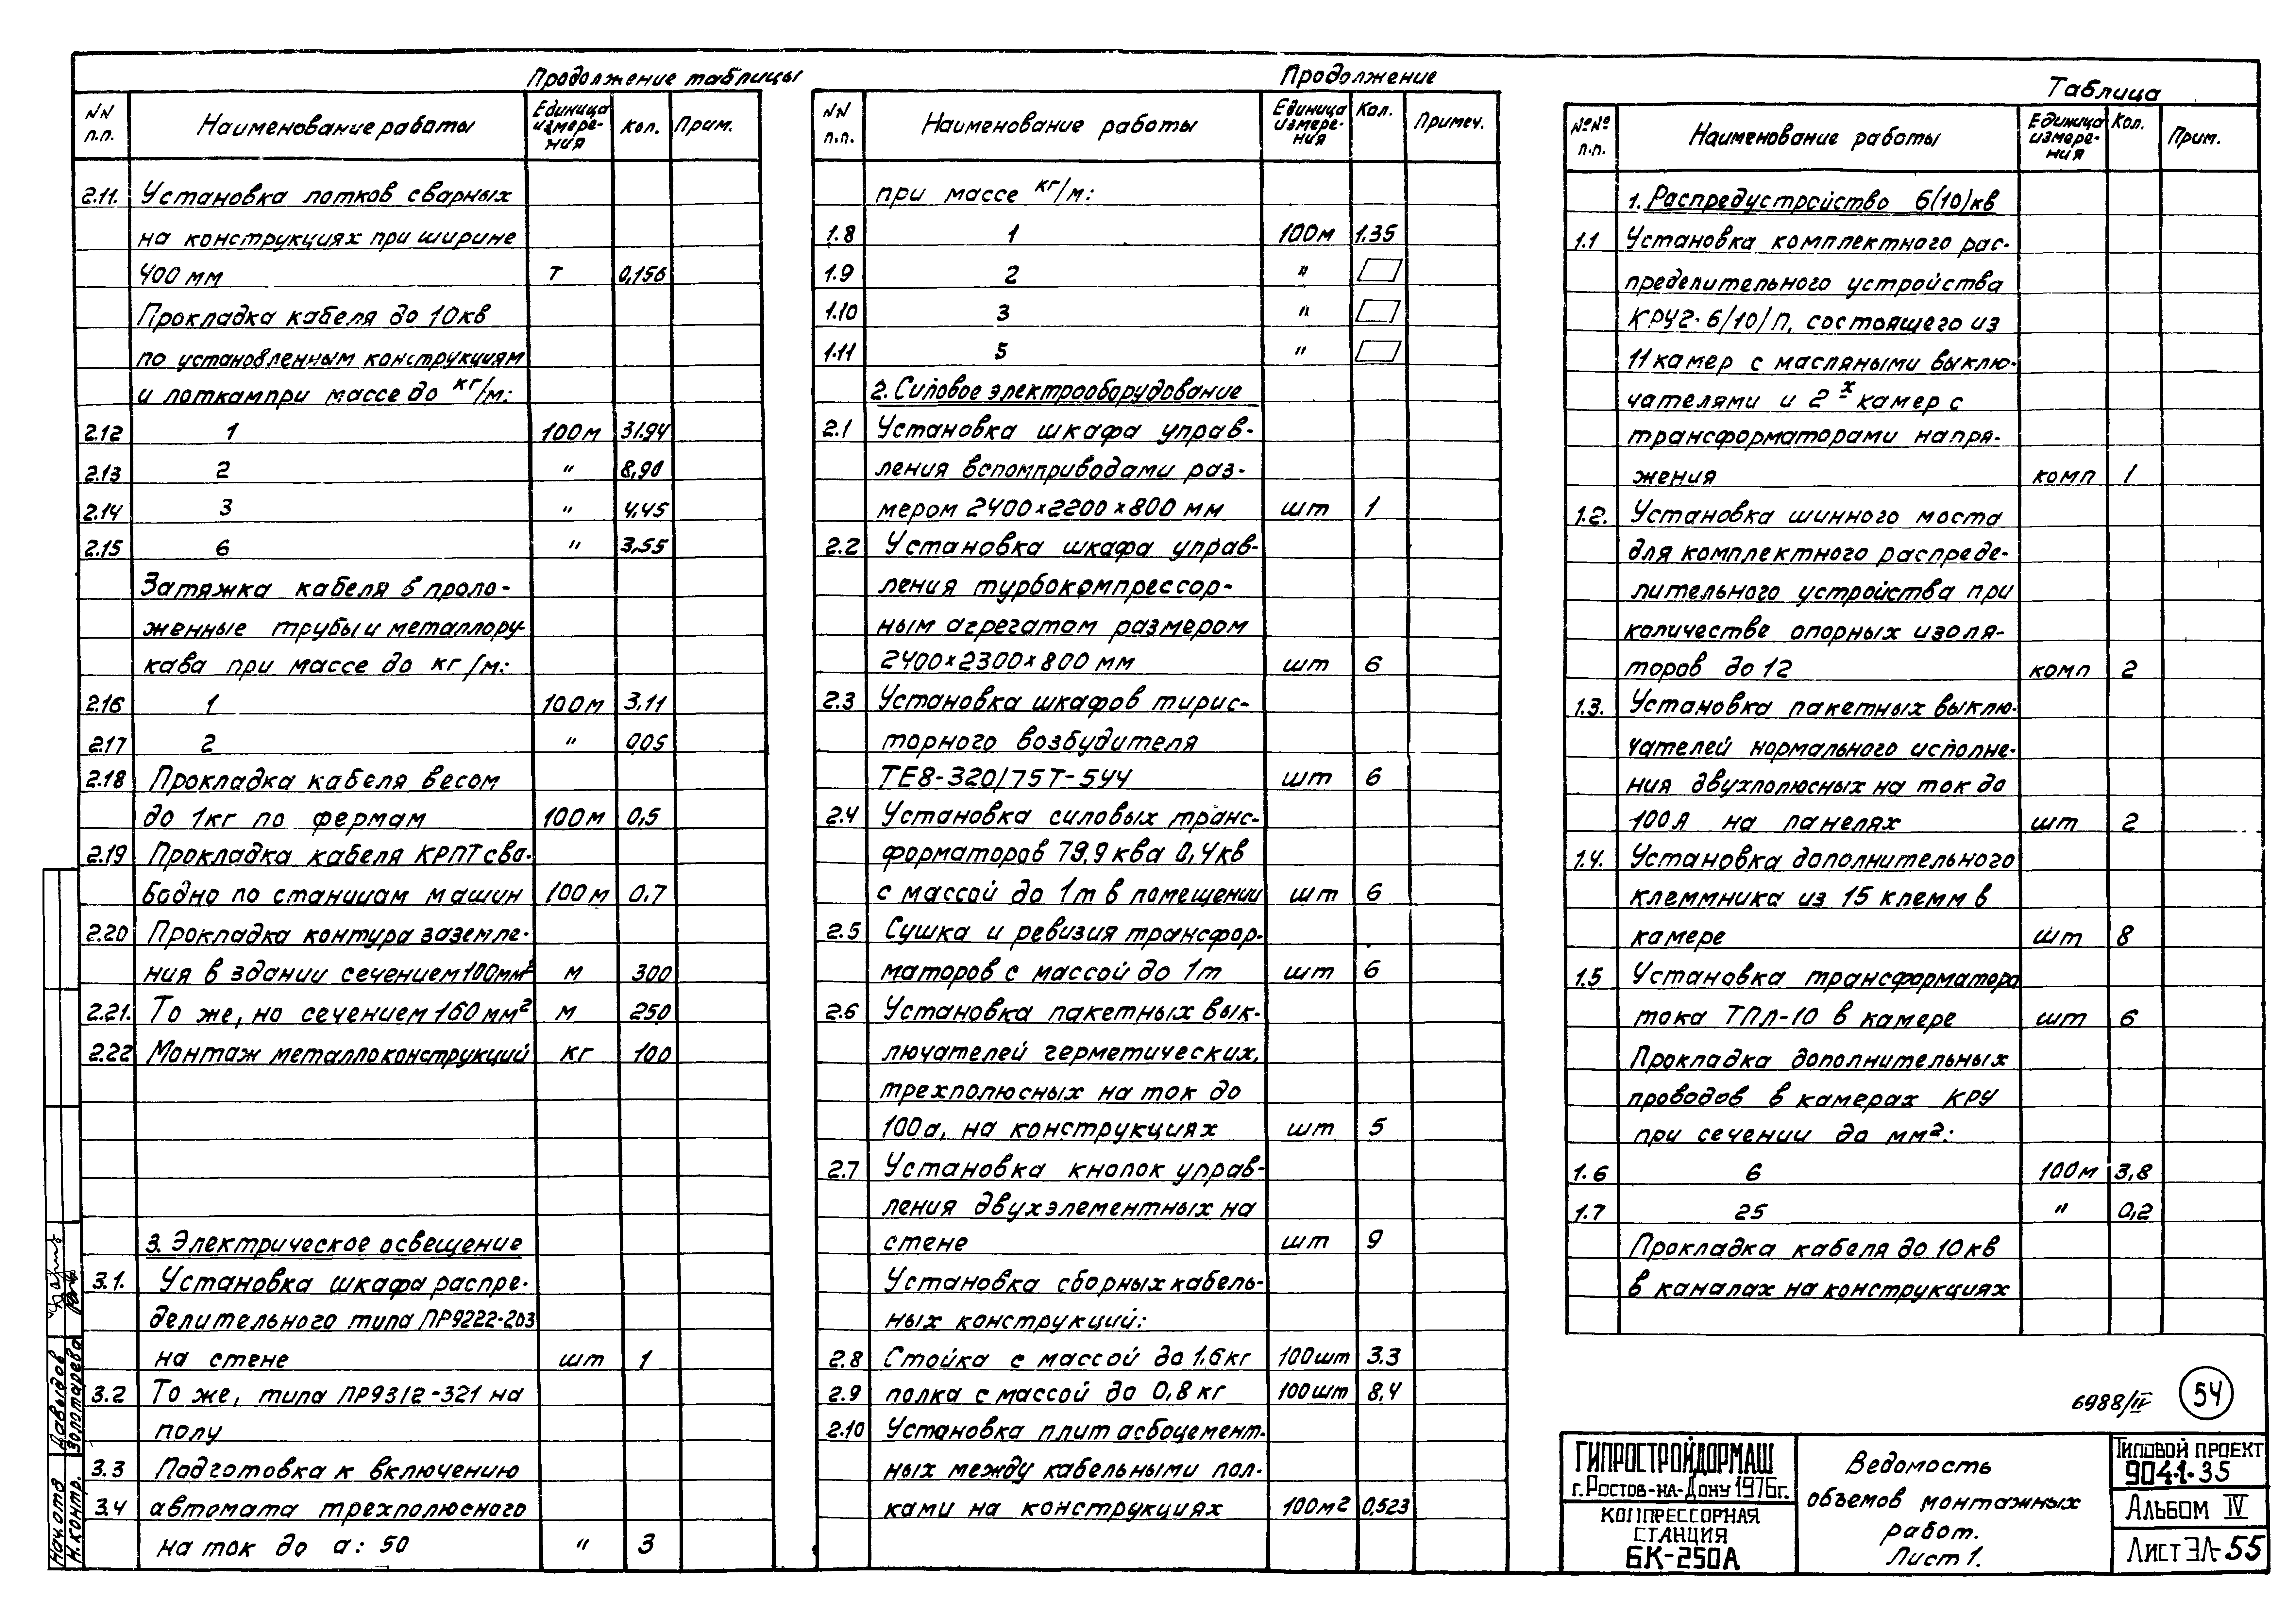 Продолжение таблицы
NN п.п. Наименование работы Единица измере-ния Кол. Прим.
2.11. Установка лотков сварных
на конструкциях при ширине
400 мм т 0,156
Прокладка кабеля до 10кв
по установленным конструкциям
и лоткам при массе до кг/м:
2.12 1 100м 31.94
2.13 2 " 8,90
2.14 3 " 4,45
2.15 6 " 3,55
Затяжка кабеля в проло-
женные трубы и металлору-
кава при массе до кг/м:
2.16 1 100м 3,11
2.17 2 " 0,05
2.18 Прокладка кабеля весом
до 1кг по фермам 100м 0,5
2.19 Прокладка кабеля КРПТ сво-
бодно по станицам машин 100м 0,7
2.20 Прокладка контура заземле-
ния в здании сечением 100мм² м 300
2.21. То же, но сечением 160 мм² м 250
2.22 Монтаж металлоконструкций кг 100
3. Электрическое освещение
3.1. Установка шкафа распре-
делительного типа ПР9222-203
на стене шт 1
3.2 То же, типа ПР9312-321 на
полу
3.3 Подготовка к включению
3.4 автомата трехполюсного
на ток до а: 50 " 3
Продолжение
NN п.п. Наименование работы Единица измере-ния Кол. Примеч.
при массе кг/м:
1.8 1 100м 1.35
1.9 2 "
1.10 3 "
1.11 5 "
2. Силовое электрооборудование
2.1 Установка шкафа управ-
ления вспомприводами раз-
мером 2400×2200×800 мм шт 1
2.2 Установка шкафа управ-
ления турбокомпрессор-
ным агрегатом размером
2400×2300×800 мм шт 6
2.3 Установка шкафов тирис-
торного возбудителя
ТЕ8-320/75Т-5У4 шт 6
2.4 Установка силовых транс-
форматоров 79,9 ква 0,4кв
с массой до 1т в помещении шт 6
2.5 Сушка и ревизия трансфор-
маторов с массой до 1т шт 6
2.6 Установка пакетных вык-
лючателей герметических,
трехполюсных на ток до
100а, на конструкциях шт 5
2.7 Установка кнопок управ-
ления двухэлементных на
стене шт 9
Установка сборных кабель-
ных конструкций:
2.8 Стойка с массой до 1.6кг 100шт 3.3
2.9 полка с массой до 0,8 кг 100шт 8,4
2.10 Установка плит асбоцемент-
ных между кабельными пол-
ками на конструкциях 100м² 0,523
Таблица
№№ п.п. Наименование работы Единица измере-ния Кол. Прим.
1. Распредустройство 6(10)кв
1.1 Установка комплектного рас-
пределительного устройства
КРУ2-6/10/П, состоящего из
11 камер с масляными выклю-
чателями и 2х камер с
трансформаторами напря-
жения комп 1
1.2. Установка шинного моста
для комплектного распреде-
лительного устройства при
количестве опорных изоля-
торов до 12 комп 2
1.3. Установка пакетных выклю-
чателей нормального исполне-
ния двухполюсных на ток до
100А на панелях шт 2
1.4. Установка дополнительного
клеммника из 15 клемм в
камере шт 8
1.5 Установка трансформатора
тока ТПЛ-10 в камере шт 6
Прокладка дополнительных
проводов в камерах КРУ
при сечении до мм²:
1.6 6 100м 3,8
1.7 25 " 0,2
Прокладка кабеля до 10кв
в каналах на конструкциях
6988/IV 54
ГИПРОСТРОЙДОРМАШ
г.Ростов-на-Дону 1976г.
Компрессорная
станция
6К-250А
Ведомость
объемов монтажных
работ.
Лист 1.
Типовой проект
904-1-35
Альбом IV
Лист ЭЛ-55
Нач.отд Давыдов
Н.контр. Золотарева